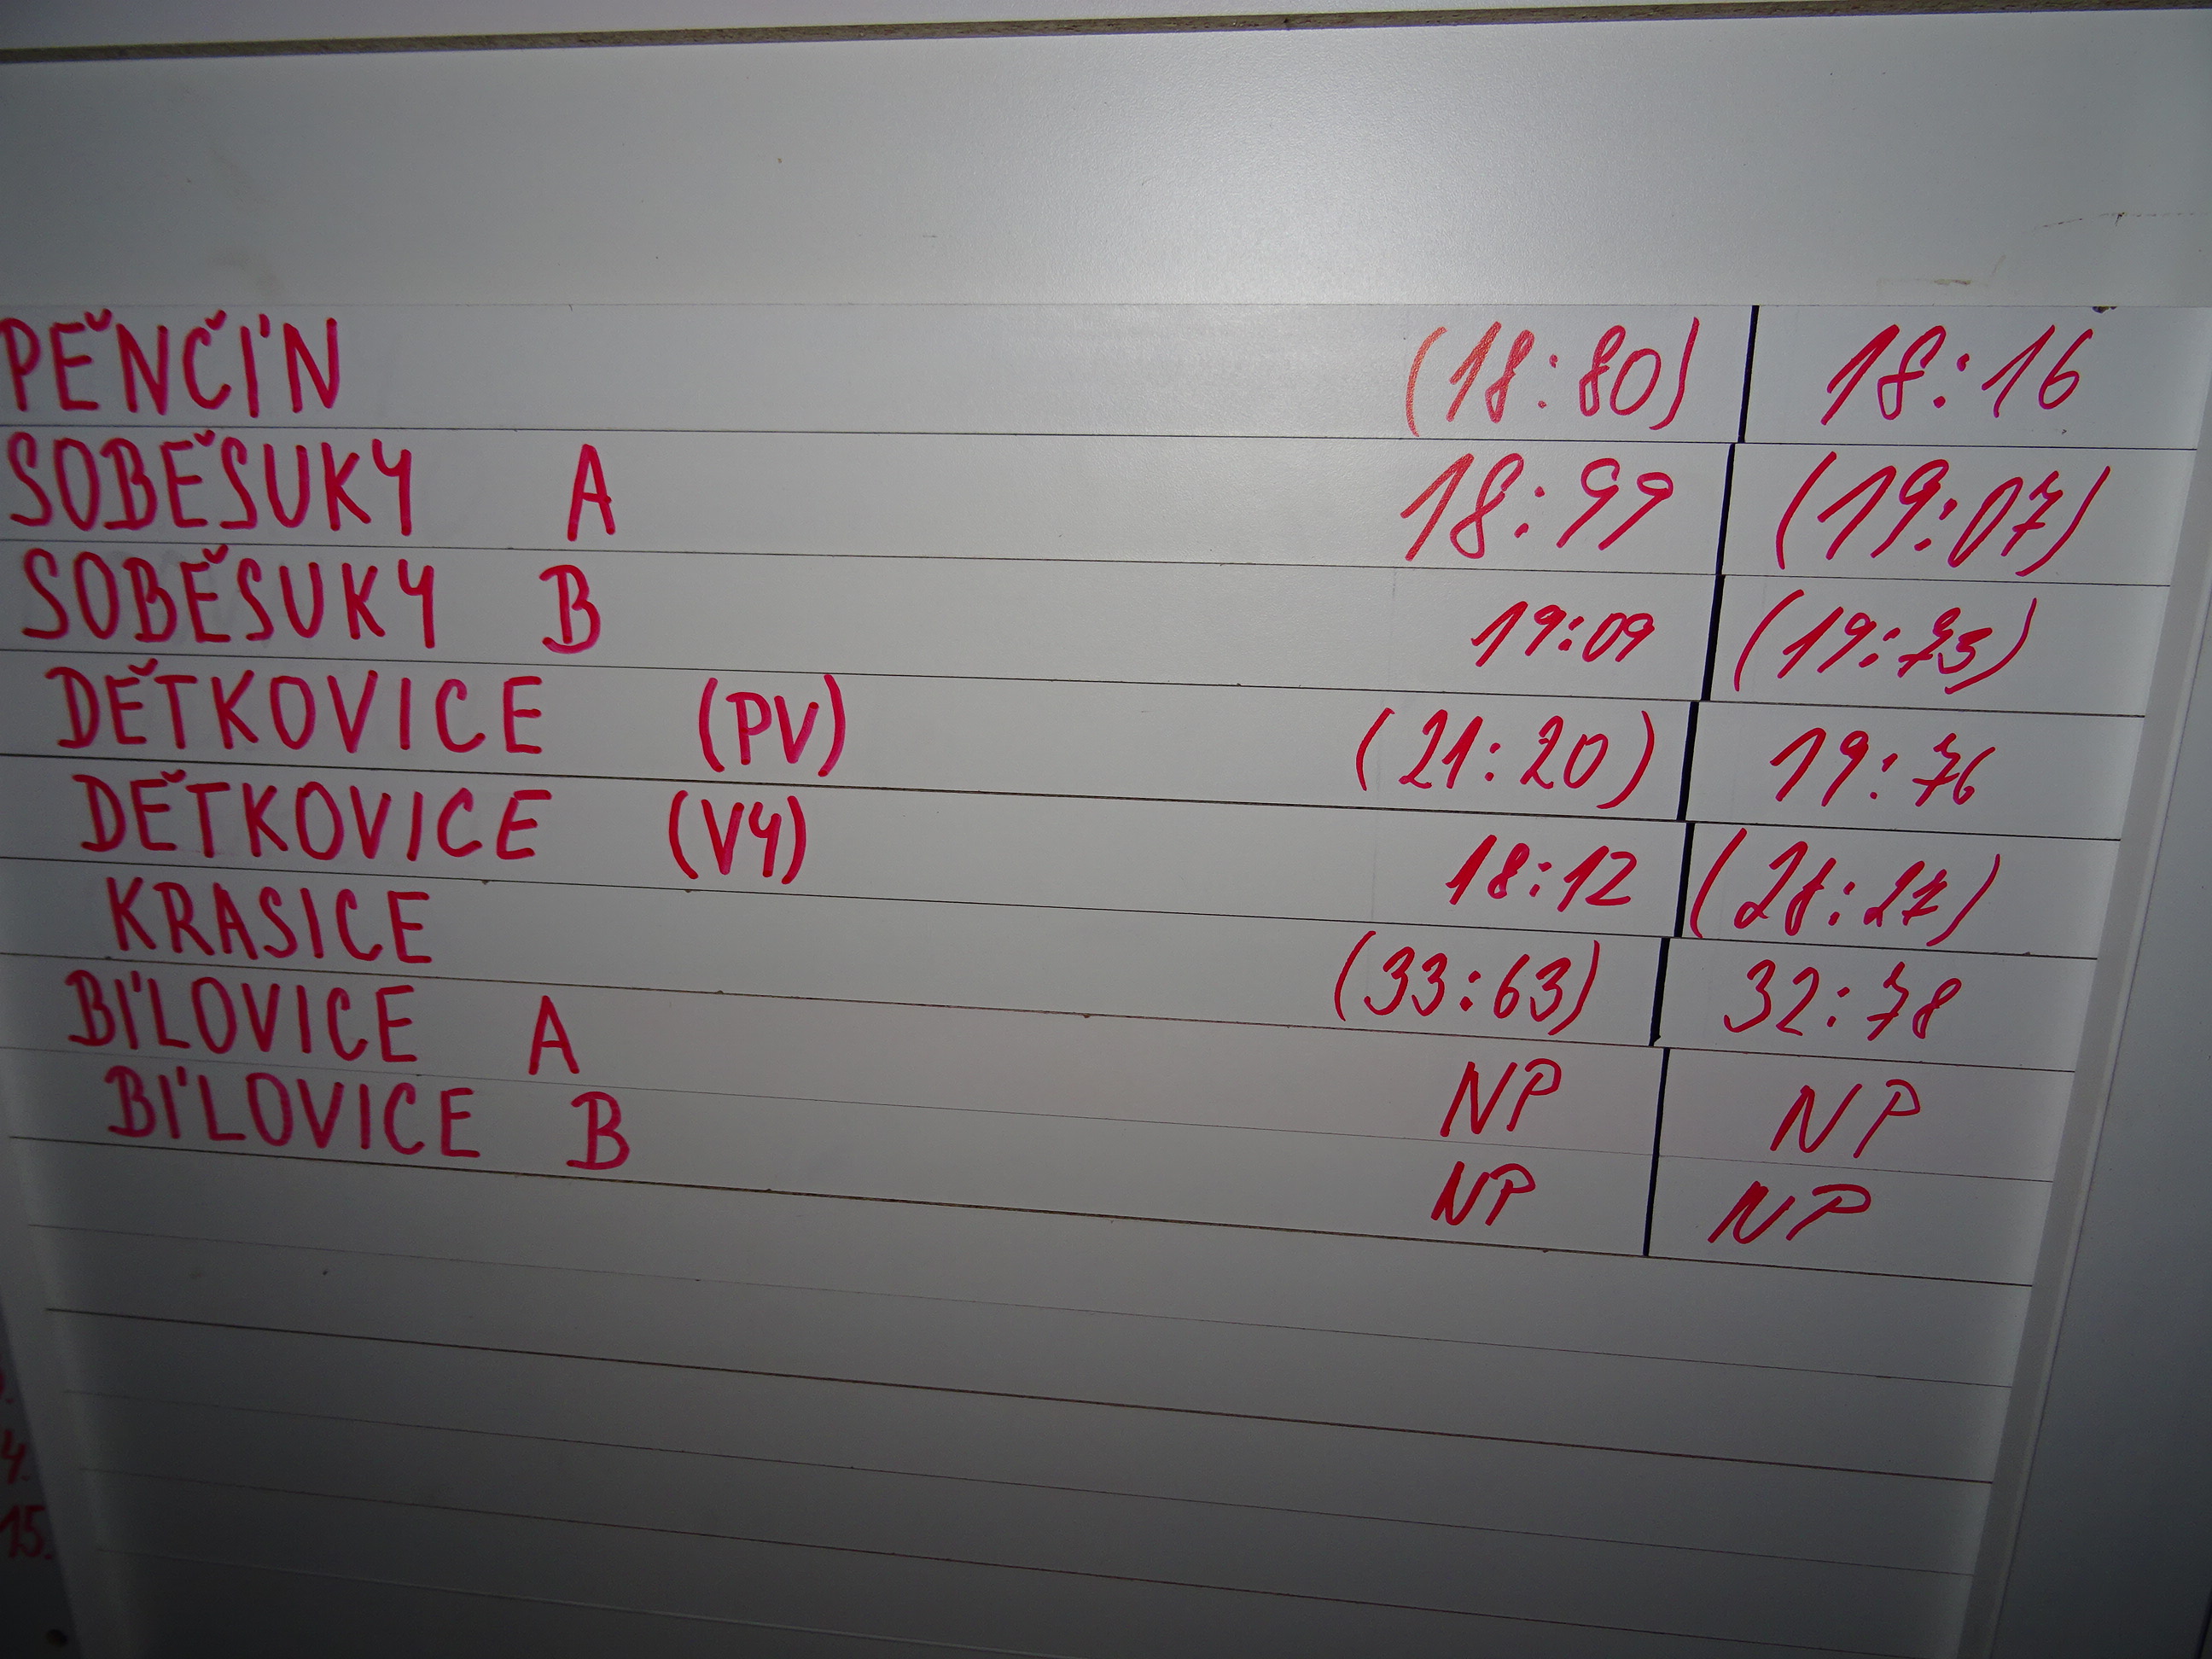 PĚNČÍN (18:80) 18:16
SOBĚSUKY A 18:99 (19:07)
SOBĚSUKY B 19:09 (19:73)
DĚTKOVICE (PV) (21:20) 19:76
DĚTKOVICE (VY) 18:12 (28:27)
KRASICE (33:63) 32:78
BÍLOVICE A NP NP
BÍLOVICE B NP NP
4.
15.